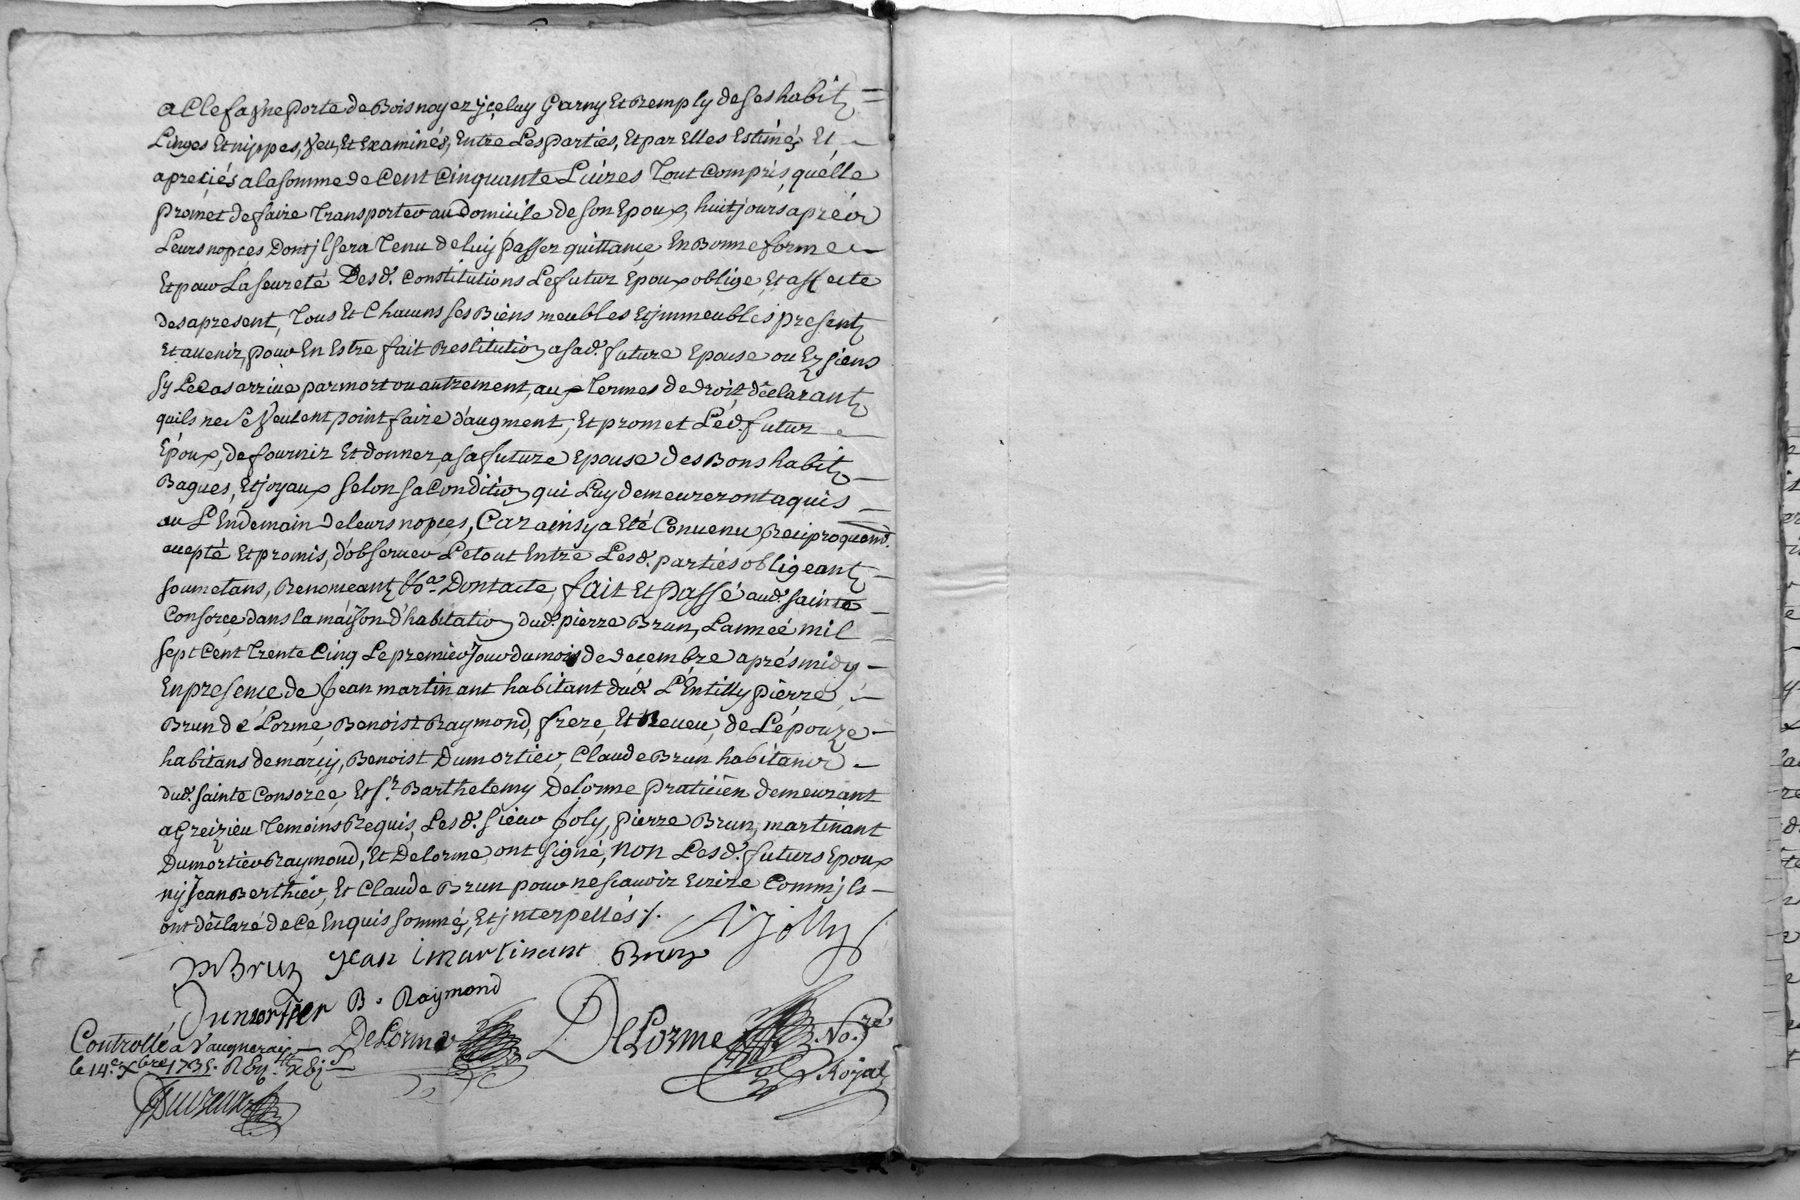 a Clef a Une porte de Bois noyer yceluy Garny Et Remply de Ses habitz
Linges Et nippes, Veu, Et Examinés, Entre Les parties, Et par Elles Estimés Et
apreciés a la somme de Cent Cinquante Livres Tout Compris, quélle
promet de faire Transporter au Domicile de Son Epoux, huit jours aprés
Leurs nopces Dont jl Sera Tenu de luy Passer quittance En Bonne forme
Et pour La Seureté Desd. Constitutions Le futur Epoux oblige, Et affecte
des apresent, Tous Et Chacuns Ses Biens meubles Et jmmeubles presentz
Et avenir, pour En Estre fait Restitution a sad. future Epouse ou Ez Siens
Sy Le Cas arrive par mort ou autrement, aux Termes de droit, déclarantz
quils ne Se Veulent point faire d'augment, Et promet Led. futur
Epoux, de fournir Et donner, a sa future Epouse des Bons habitz
Bagues, Et joyaux Selon sa Condition qui Luy demeureront aquis
au L'Endemain de leurs nopces, Car ainsy a Eté Convenu, Reciproquemt.
accepté Et promis, d'observer Le tout Entre Lesd. parties obligeantz
soumetans, Renonceantz &a. Dont acte, fait Et Passé aud. Sainte
Consorce dans la maison d'habitation dud. pierre Brun, L'année mil
sept Cent Trente Cinq Le premier Jour du mois de decembre aprés midy
En presence de Jean martinant habitant dud. L'Entilly pierre
Brun de L'orme, Benoist Raymond, frere, Et Neveu, de L'épouze
habitans de marcy, Benoist Dumortier, Claude Brun habitans
dud. Sainte Consorce, Et Sr. Barthelemy Delorme praticien demeurant
a Greizieu Temoins Requis, Lesd. Sieur Joly, pierre Brun, martinant
Dumortier Raymond, Et Delorme ont Signé, non Lesd. futurs Epoux
ny Jean Berthier, Et Claude Brun pour ne Scavoir Ecrire Comm jls
ont déclaré de Ce Enquis Sommés, Et jnterpellés ./.
Jolly
P Brun Jean martinant Brun
Dumortier B. Raymond
Delorme DeLorme No.re
Royal
Controllé a Vaugneray
le 14.e Xbre 1735.